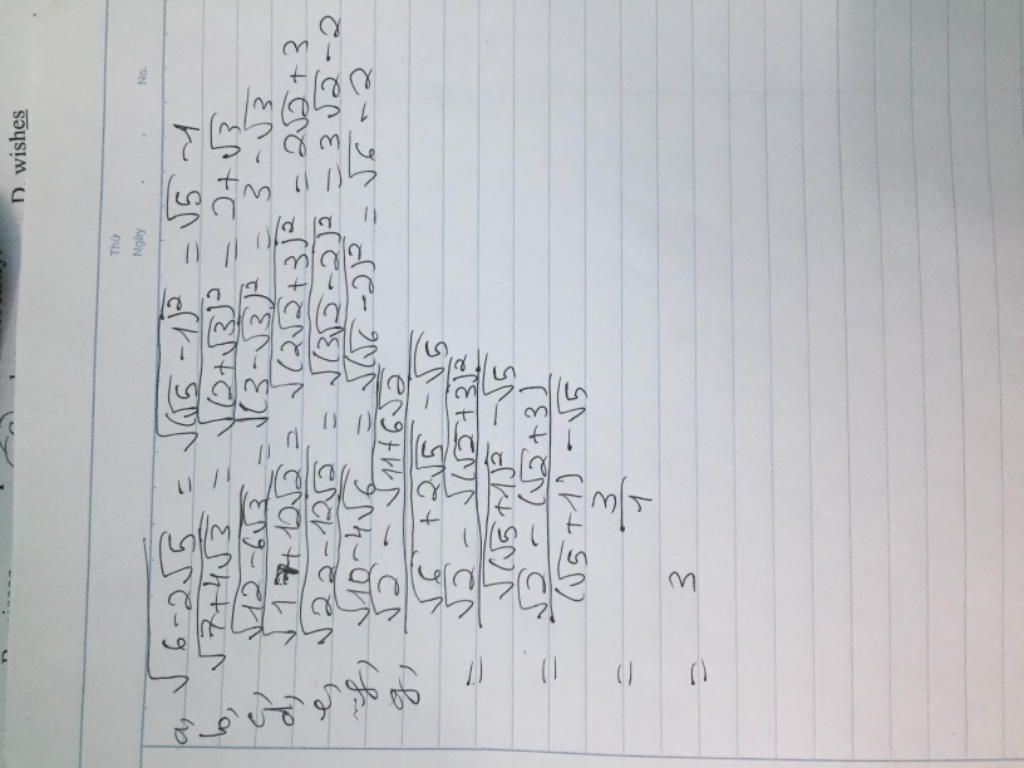 D. wishes
Thứ
Ngày
No.
a, √(6-2√5) = √((√5-1)²) = √5-1
b, √(7+4√3) = √((2+√3)²) = 2+√3
c, √(12-6√3) = √((3-√3)²) = 3-√3
d, √(17+12√2) = √((2√2+3)²) = 2√2+3
e, √(22-12√2) = √((3√2-2)²) = 3√2-2
f, √(10-4√6) = √((√6-2)²) = √6-2
g, (√2 - √(11+6√2)) / (√(6+2√5) - √5)
= (√2 - √((√2+3)²)) / (√((√5+1)²) - √5)
= (√2 - (√2+3)) / ((√5+1) - √5)
= 3/1
= 3